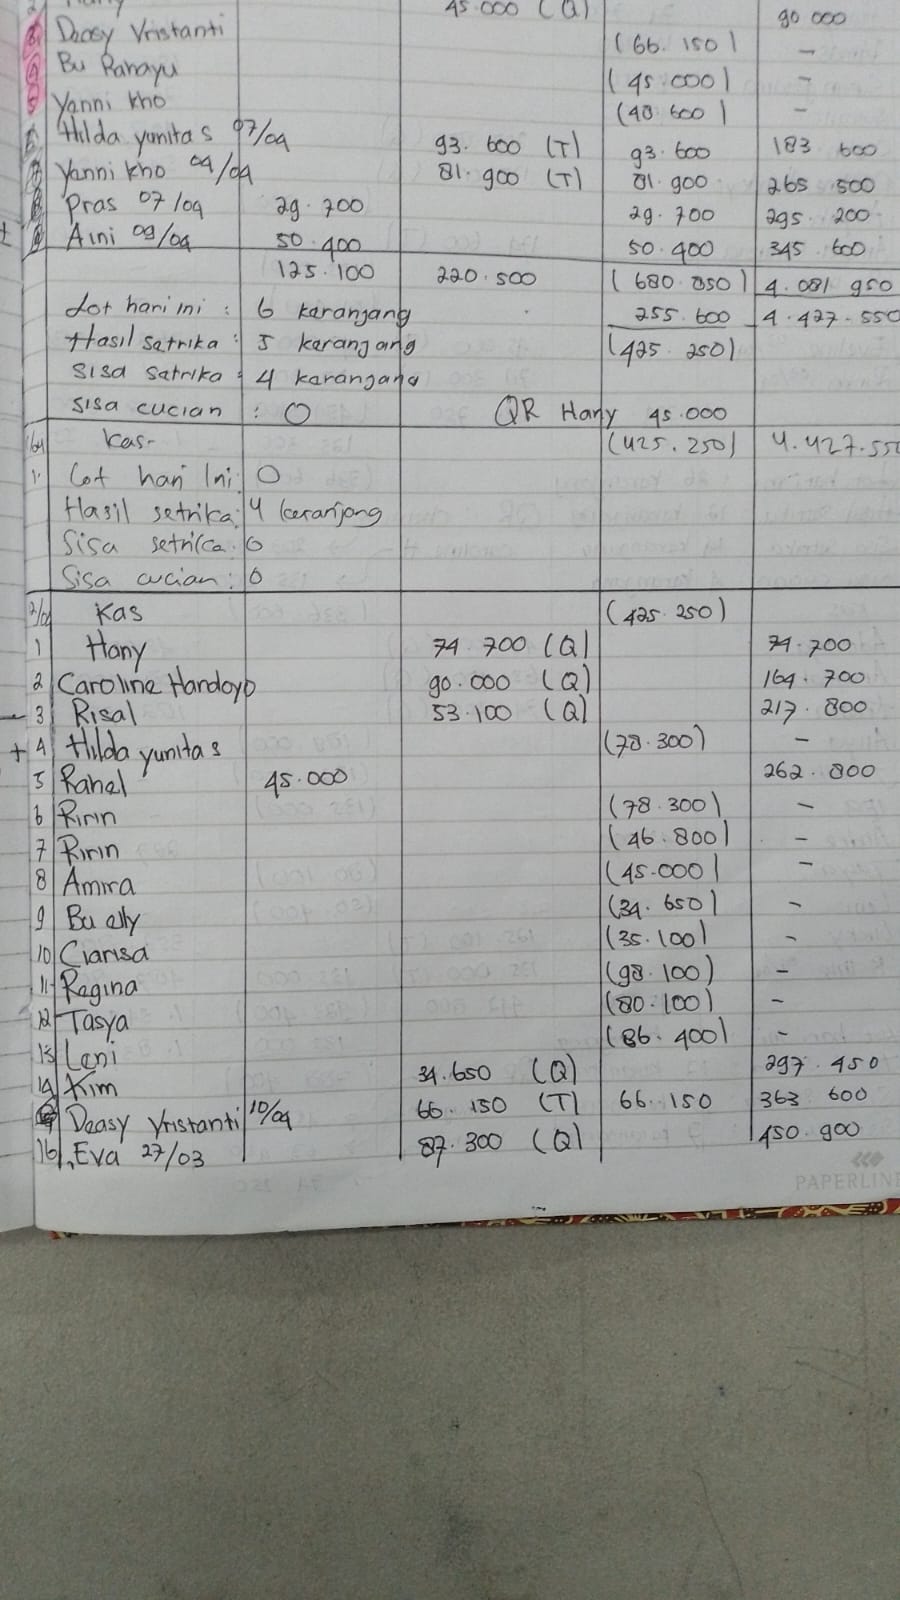 45.000 (Q) 90 000
Deasy Vristanti (66.150) -
Bu Rahayu (45.000) -
Yanni kho (40.600) -
Hilda yunitas 07/04 93.600 (T) 93.600 183 600
Yanni kho 04/04 81.900 (T) 81.900 265 500
Pras 07/04 29.700 29.700 295.200
Aini 09/04 50.400 50.400 345.600
125.100 220.500 (680.850) 4.081 950
Lot hari ini : 6 keranjang 255.600 4.427.550
Hasil satrika : 5 keranjang (425.250)
Sisa satrika : 4 karangang
Sisa cucian : 0 QR Hany 45.000
Kas- (425.250) 4.427.550
1. Lot hari Ini: 0
Hasil setrika: 4 keranjang
Sisa setrika: 0
Sisa cucian: 0
Kas (425.250)
1 Hany 74.700 (Q) 74.700
2 Caroline Handoyo 90.000 (Q) 164.700
- 3 Risal 53.100 (Q) 217.800
+ 4 Hilda yunitas (78.300) -
5 Rahel 45.000 262.800
6 Ririn (78.300) -
7 Ririn (46.800) -
8 Amira (45.000) -
9 Bu elly (34.650) -
10 Clarisa (35.100) -
11 Regina (98.100) -
12 Tasya (80.100) -
13 Leni (86.400) -
14 Kim 34.650 (Q) 297.450
Deasy Vristanti 10/04 66.150 (T) 66.150 363 600
16 Eva 27/03 87.300 (Q) 450.900
PAPERLINE